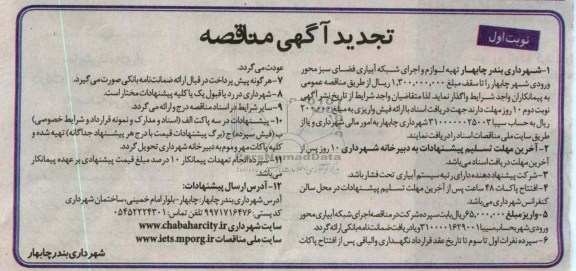 نوبت اول
تجدید آگهی مناقصه
۱-شهرداری بندر چابهار تهیه لوازم و اجرای شبکه آبیاری فضای سبز محور
ورودی شهر چابهار را تا سقف مبلغ ۱,۳۰۰,۰۰۰,۰۰۰ ریال از طریق مناقصه عمومی
به پیمانکاران واجد شرایط واگذار نماید. لذا متقاضیان واجد شرایط از تاریخ نشر آگهی
نوبت دوم ۱۰ روز مهلت دارند جهت دریافت اسناد با ارائه فیش واریزی به مبلغ ۲۰۰,۰۰۰
ریال به حساب سیبا شهرداری چابهار به امور مالی شهرداری و یا از
طریق سایت ملی مناقصات اسناد را دریافت نمایند.
۲-آخرین مهلت تسلیم پیشنهادات به دبیرخانه شهرداری ۱۰ روز پس از
آخرین مهلت دریافت اسناد می باشد.
۳-شرکت پیشنهاد دهنده دارای رتبه سیستم آبیاری تحت فشار باشد.
۴-افتتاح پاکات ۴۸ ساعت پس از آخرین مهلت تسلیم پیشنهادات در محل سالن
کنفرانس شهرداری می باشد.
۵-واریز مبلغ ۶۵,۰۰۰,۰۰۰ ریال بابت سپرده شرکت در مناقصه اجرای شبکه آبیاری محور
ورودی شهر بحساب سیبا و یا دریافت ضمانت نامه بانکی ارائه گردد.
۶-سپرده نفرات اول تا سوم تا تاریخ عقد قرارداد نگهداری و الباقی پس از افتتاح پاکات
عودت می گردد.
۷-هر گونه پیش پرداخت در قبال ارائه ضمانت نامه بانکی صورت می گیرد.
۸-شهرداری در رد یا قبول یک یا کلیه پیشنهادات مختار است.
۹-سایر شرایط در اسناد مناقصه درج و ارائه می گردد.
۱۰-پیشنهادات در سه پاکت الف (اسناد و مدارک و نمونه قرارداد و شرایط خصوصی)
ب(فیش سپرده) ج (برگ پیشنهادات قیمت با درج هر پیشنهاد جداگانه) تهیه شده و
کلیه پاکات مهر و موم به دبیرخانه شهرداری تحویل گردد.
۱۱-سپرده انجام تعهدات پیمانکار ۱۰ درصد مبلغ قیمت پیشنهادی بر عهده پیمانکار
می باشد.
۱۲-آدرس ارسال پیشنهادات:
آدرس شهرداری بندر چابهار: چابهار-بلوار امام خمینی، ساختمان شهرداری
کد پستی: ۹۹۷۱۷۱۶۴۷۶ تلفن تماس: ۰۵۴۵۲۲۲۴۳۰۱
سایت شهرداری www.chabaharcity.ir
سایت ملی مناقصات www.iets.mporg.ir
شهرداری بندر چابهار